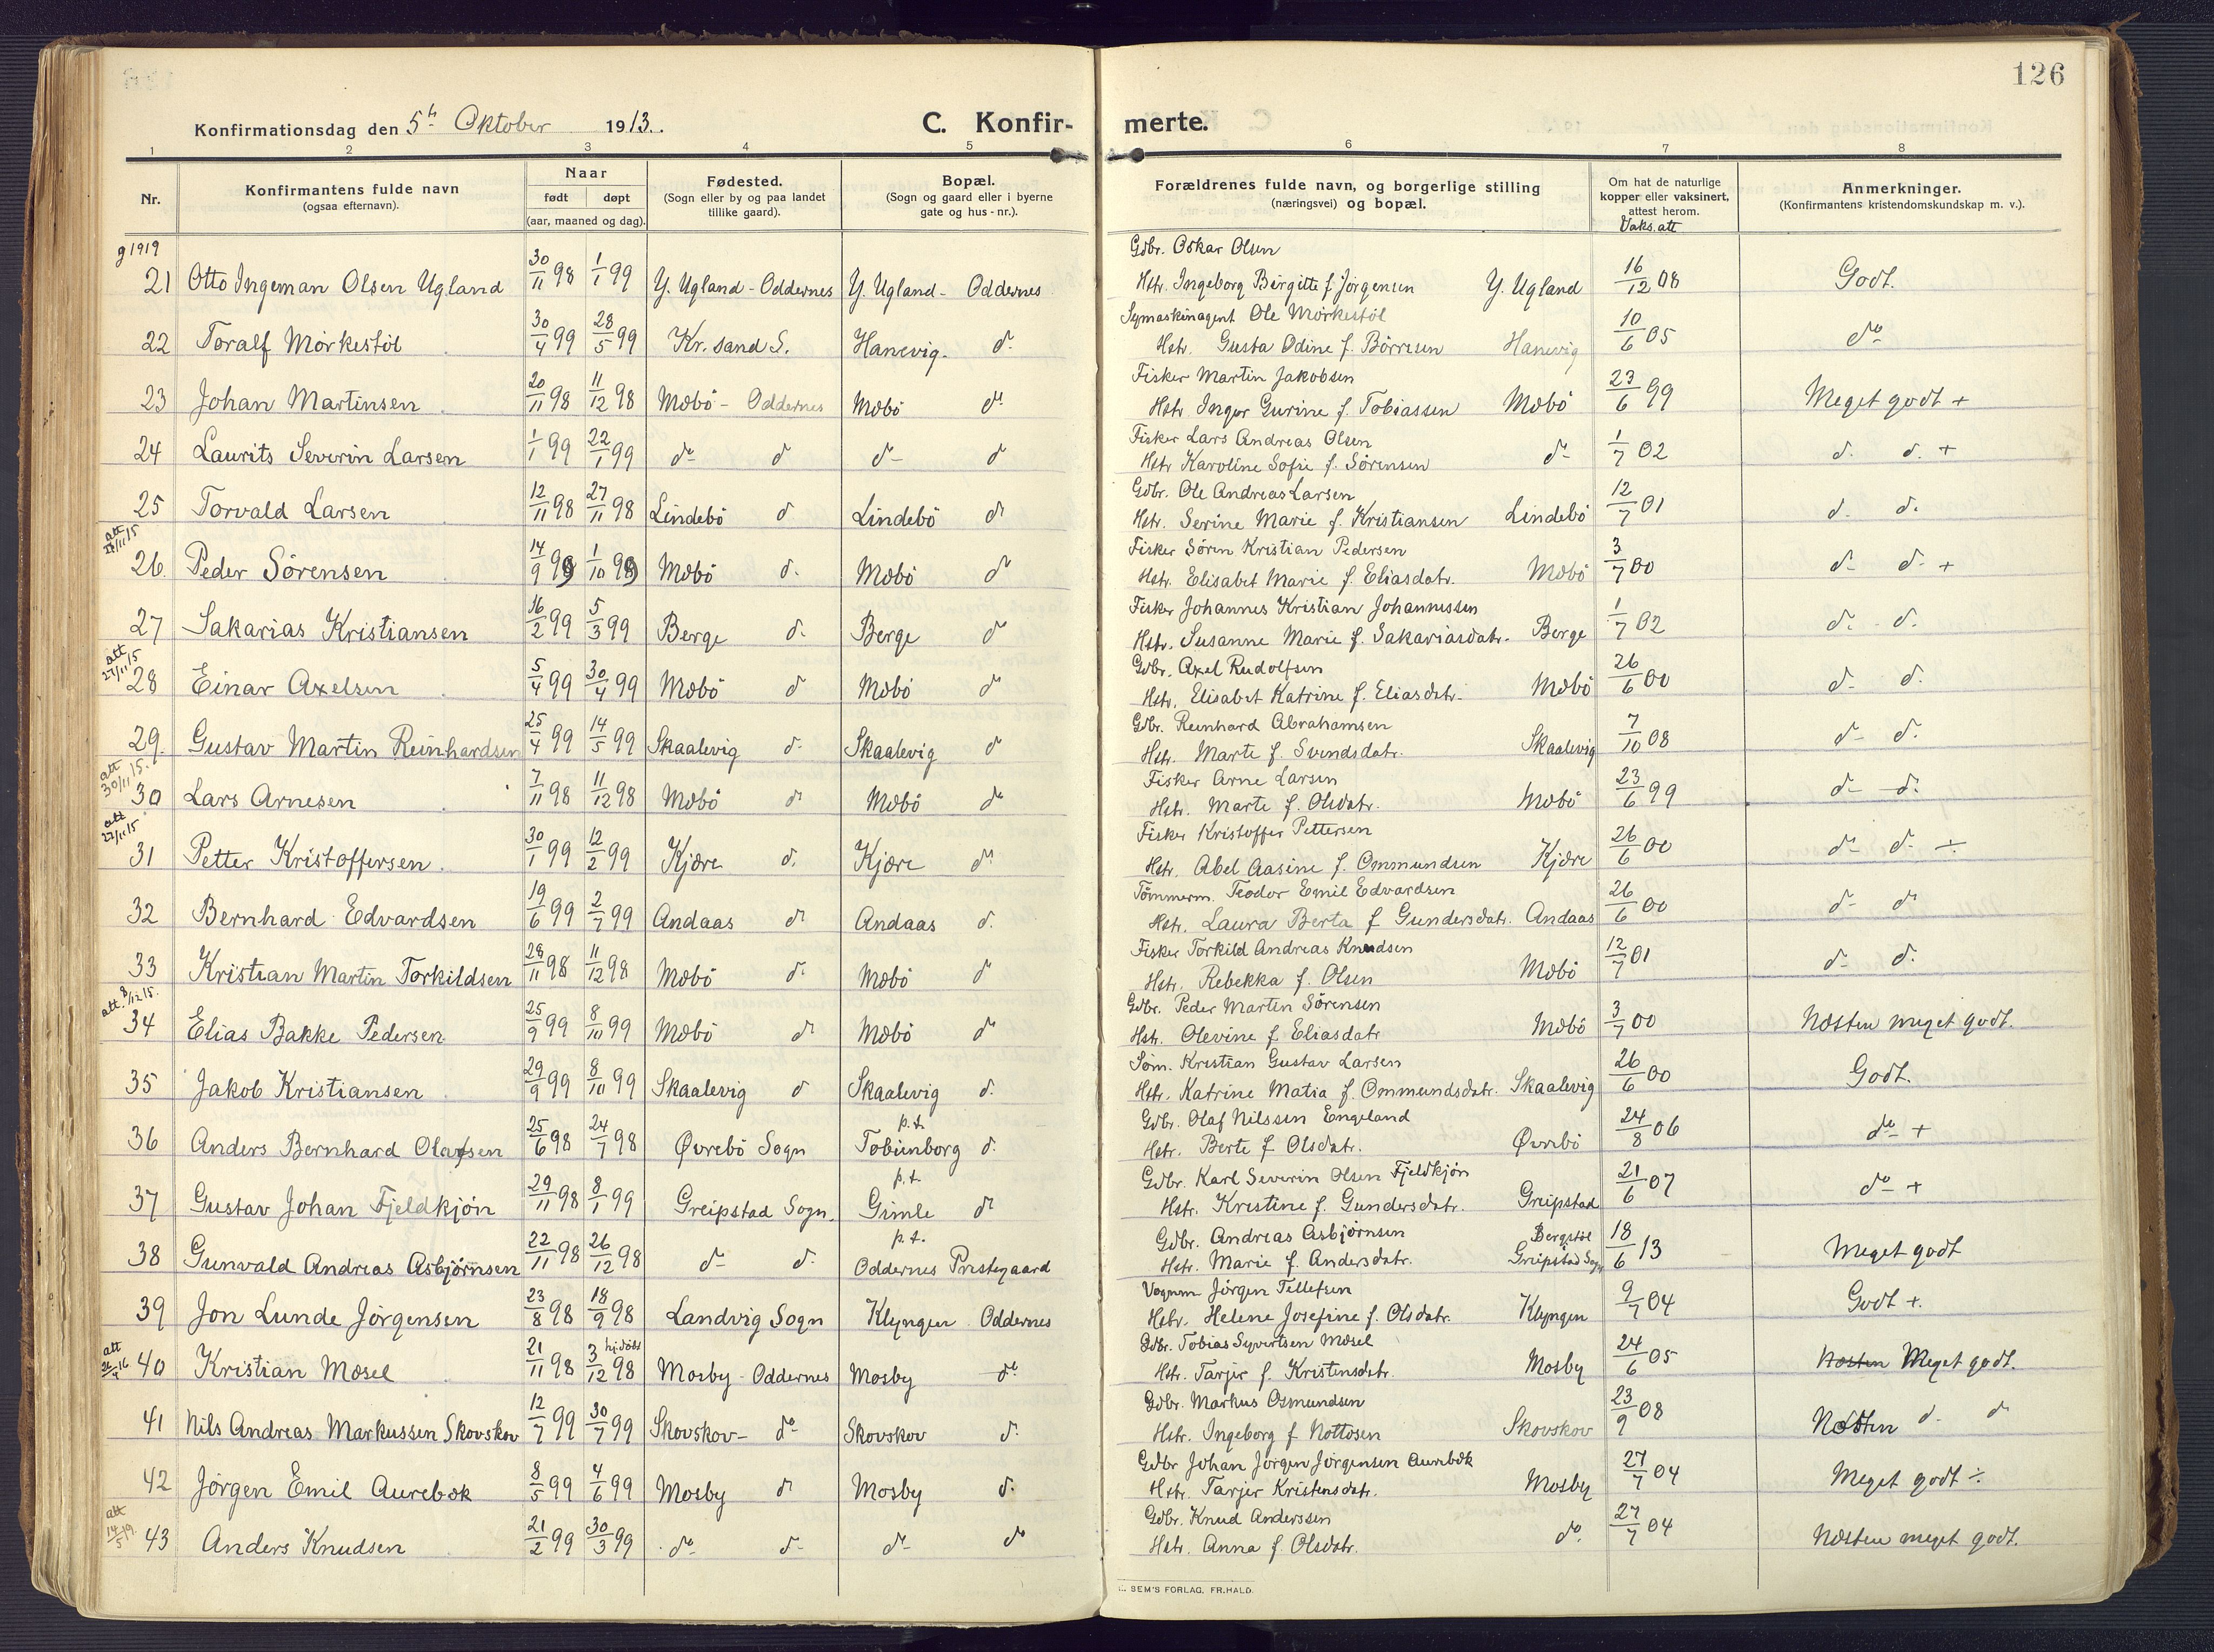 126
Konfirmationsdag den 5te Oktober 1913.
C. Konfir- merte.
1 2 3 4 5 6 7 8
Nr.
Konfirmantens fulde navn
(ogsaa efternavn).
Naar
født døpt
(aar, maaned og dag).
Fødested.
(Sogn eller by og paa landet
tillike gaard).
Bopæl.
(Sogn og gaard eller i byerne
gate og hus-nr.).
Forældrenes fulde navn, og borgerlige stilling
(næringsvei) og bopæl.
Om hat de naturlige
kopper eller vaksinert,
attest herom.
Vaks. att
Anmerkninger.
(Konfirmantens kristendomskundskap m. v.).
g 1919
Gdbr. Oskar Olsen
21 Otto Ingeman Olsen Ugland 30/11 98 1/1 99 Y. Ugland - Oddernes Y. Ugland - Oddernes Hstr. Ingeborg Birgitte f. Jørgensen Y. Ugland 16/12 08 Godt.
Symaskinagent Ole Mörkestöl
22 Toralf Mörkestöl 30/4 99 28/5 99 Kr.sand S. Hanevig. do Hstr. Gusta Odine f. Börresen Hanevig 10/6 05 do
Fisker Martin Jakobsen
23 Johan Martinsen 20/11 98 11/12 98 Mæbö - Oddernes Mæbö do Hstr. Inger Gurine f. Tobiassen Mæbö 23/6 99 Meget godt +
Fisker Lars Andreas Olsen
24 Laurits Severin Larsen 1/1 99 22/1 99 do do do do Hstr Karoline Sofie f. Sörensen do 1/7 02 do do +
Gdbr. Ole Andreas Larsen
25 Torvald Larsen 12/11 98 27/11 98 Lindebö do Lindebö do Hstr. Serine Marie f. Kristiansen Lindebö 12/7 01 do do
att 27/11 15
Fisker Sören Kristian Pedersen
26. Peder Sörensen 14/9 99 1/10 99 Mæbö do Mæbö do Hstr. Elisabet Marie f. Eliasdatr. Mæbö 3/7 00 do do +
Fisker Johannes Kristian Johannessen
27 Sakarias Kristiansen 16/2 99 5/3 99 Berge do Berge do Hstr. Susanne Marie f. Sakariasdatr. Berge 1/7 02 do do
att 27/11 15
Gdbr. Axel Rudolfsen
28 Einar Axelsen 5/4 99 30/4 99 Mæbö do Mæbö do Hstr. Elisabet Katrine f. Eliasdatr. Mæbö 26/6 00 do do
Gdbr. Reinhard Abrahamsen
29. Gustav Martin Reinhardsen 25/4 99 14/5 99 Skaalevig do Skaalevig do Hstr. Marte f. Svendsdatr. Skaalevig 7/10 08 do do
att 30/11 15.
Fisker Arne Larsen
30 Lars Arnesen 7/11 98 11/12 98 Mæbö do Mæbö do Hstr. Marte f. Olsdatr. Mæbö 23/6 99 do do
att 27/11 15
Fisker Kristoffer Pettersen
31 Petter Kristoffersen. 30/1 99 12/2 99 Kjære do Kjære do Hstr. Abel Aasine f. Ommundsen Kjære 26/6 00 do do ÷
Tömmerm. Teodor Emil Edvardsen
32 Bernhard Edvardsen 19/6 99 2/7 99 Andaas do Andaas do Hstr. Laura Berta f Gundersdatr. Andaas 26/6 00 do do
Fisker Torkild Andreas Knudsen
33 Kristian Martin Torkildsen 28/11 98 11/12 98 Mæbö do Mæbö do Hstr. Rebekka f. Olsen Mæbö 12/7 01 do do
att. 8/12 15.
Gdbr. Peder Martin Sörensen
34 Elias Bakke Pedersen 25/9 99 8/10 99 Mæbö do Mæbö do Hstr. Olevine f Eliasdatr Mæbö 3/7 00 Næsten meget godt.
Söm. Kristian Gustav Larsen
35 Jakob Kristiansen 29/9 99 8/10 99 Skaalevig do Skaalevig do Hstr. Katrine Matia f. Ommundsdatr. Skaalevig 26/6 00 Godt.
p.t. Gdbr. Olaf Nilssen Engeland
36 Anders Bernhard Olafsen 25/6 98 24/7 98 Øvrebö Sogn Tobienborg do Hstr. Berte f Olsdatr. Øvrebö 24/8 06 do +
p.t. Gdbr. Karl Severin Olsen Fjeldkjön
37 Gustav Johan Fjeldkjön 29/11 98 8/1 99 Greipstad Sogn. Gimle do Hstr. Kristine f. Gundersdatr. Greipstad 21/6 07 do +
p.t. Gdbr. Andreas Asbjørnsen Bergstöl
38 Gunvald Andreas Asbjørnsen 22/11 98 26/12 98 do do Oddernes Prestegaard Hstr. Marie f. Andersdatr. Greipstad Sogn 18/6 13 Meget godt
Vognm Jörgen Tellefsen
39 Jon Lunde Jörgensen 23/8 98 18/9 98 Landvig Sogn Klyngen Oddernes Hstr. Helene Josefine f. Olsdatr. Klyngen 9/7 04 Godt +.
att 26/4 16
hjdöbt Gdbr. Tobias Syvertsen Mæsel
40 Kristian Mæsel 21/11 98 3/12 98 Mosby - Oddernes Mosby do Hstr. Tarjer f. Kristensdatr. Mosby 24/6 05 Næsten Meget godt.
Gdbr. Markus Osmundsen
41 Nils Andreas Markussen Skovskov 12/7 99 30/7 99 Skovskov - do Skovskov do Hstr. Ingeborg f Nottosen Skovskov 23/9 08 Næsten do do
Gdbr Johan Jörgen Jörgensen Aurebæk
42 Jörgen Emil Aurebæk 8/5 99 4/6 99 Mosby do Mosby do Hstr. Tarjer Kristensdatr. Mosby 27/7 04 Meget godt ÷
att 14/5 19.
Gdbr. Knud Anderssen
43 Anders Knudsen 21/2 99 30/3 99 do do do do Hstr. Anna f. Olsdatr. do 27/7 04 Næsten meget godt.
SEM'S FORLAG, FR.HALD.